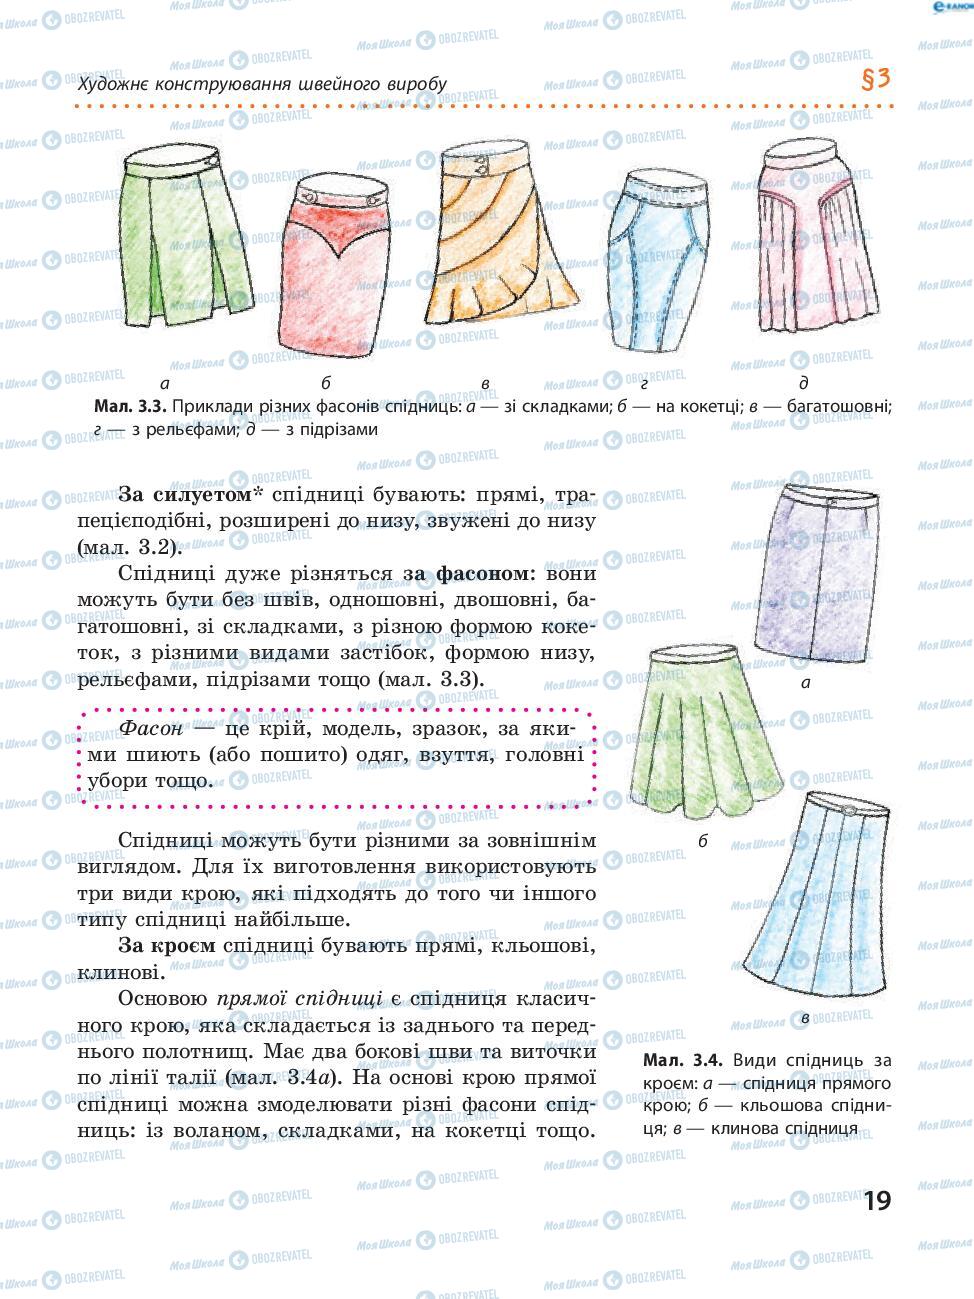 e-RANOK
Художнє конструювання швейного виробу
§3
а
б
в
г
д
Мал. 3.3. Приклади різних фасонів спідниць: а — зі складками; б — на кокетці; в — багатошовні;
г — з рельєфами; д — з підрізами
За силуетом* спідниці бувають: прямі, тра-
пецієподібні, розширені до низу, звужені до низу
(мал. 3.2).
Спідниці дуже різняться за фасоном: вони
можуть бути без швів, одношовні, двошовні, ба-
гатошовні, зі складками, з різною формою коке-
ток, з різними видами застібок, формою низу,
рельєфами, підрізами тощо (мал. 3.3).
Фасон — це крій, модель, зразок, за яки-
ми шиють (або пошито) одяг, взуття, головні
убори тощо.
Спідниці можуть бути різними за зовнішнім
виглядом. Для їх виготовлення використовують
три види крою, які підходять до того чи іншого
типу спідниці найбільше.
За кроєм спідниці бувають прямі, кльошові,
клинові.
Основою прямої спідниці є спідниця класич-
ного крою, яка складається із заднього та перед-
нього полотнищ. Має два бокові шви та виточки
по лінії талії (мал. 3.4а). На основі крою прямої
спідниці можна змоделювати різні фасони спід-
ниць: із воланом, складками, на кокетці тощо.
а
б
в
Мал. 3.4. Види спідниць за
кроєм: а — спідниця прямого
крою; б — кльошова спідни-
ця; в — клинова спідниця
19
МояШкола OBOZREVATEL